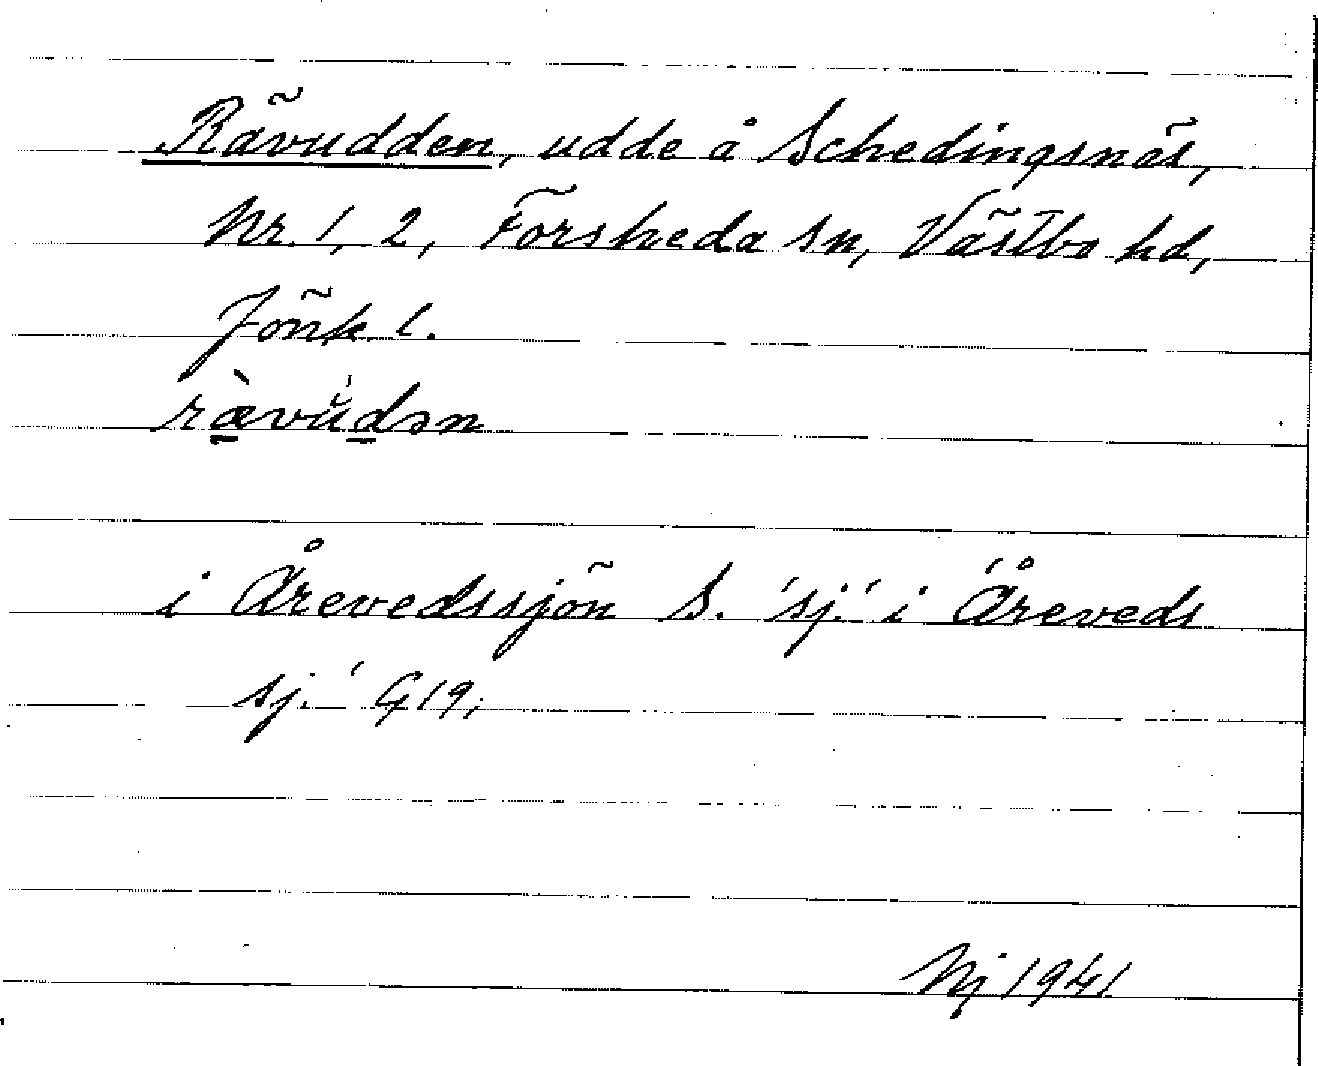 Rävudden, udde å Schedingsnäs,
Nr. 1, 2, Forsheda sn, Västbo hd,
Jönk. l.
rævudən
i Årevedssjön S. 'sj.' i 'Åreveds
sj.' G19;
Nj 1941